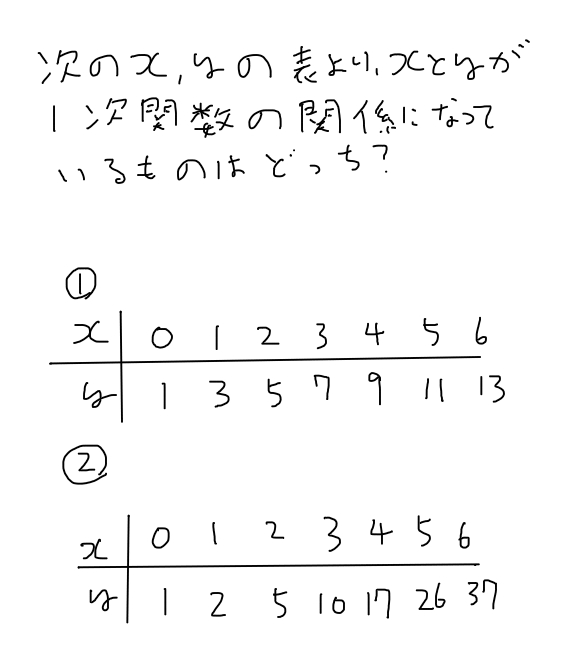 次のx,yの表より,xとyが
1次関数の関係になって
いるものはどっち?
①
x 0 1 2 3 4 5 6
y 1 3 5 7 9 11 13
②
x 0 1 2 3 4 5 6
y 1 2 5 10 17 26 37